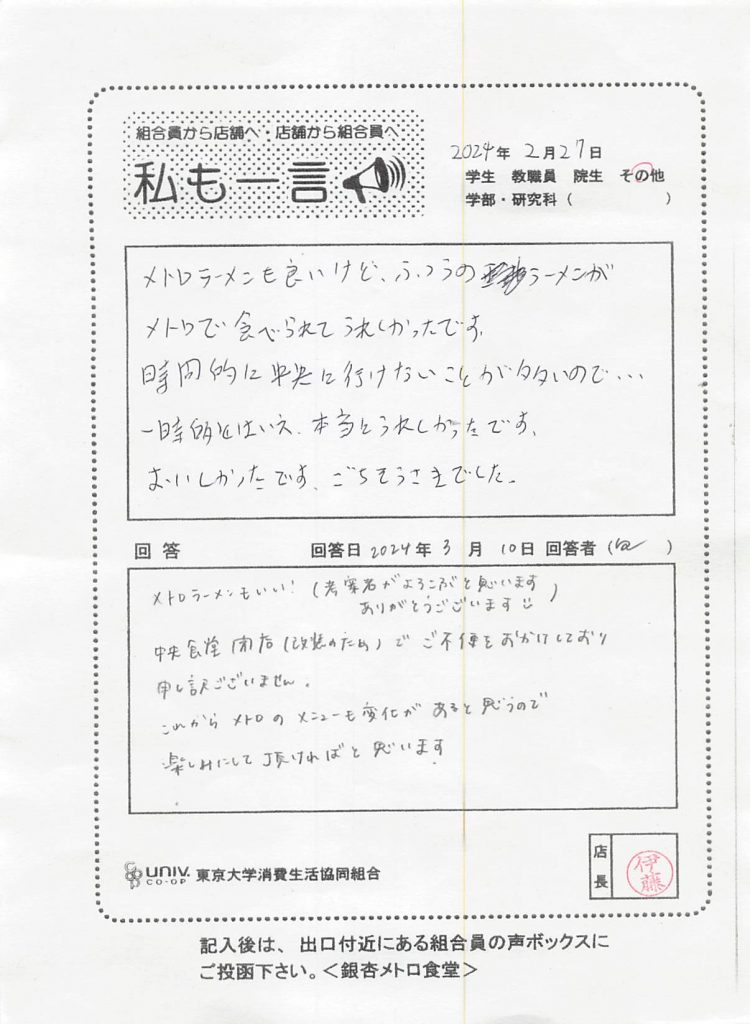 組合員から店舗へ・店舗から組合員へ
私も一言
2024年 2月27日
学生 教職員 院生 その他
学部・研究科（ ）
メトロラーメンも良いけど、ふつうのラーメンが
メトロで食べられてうれしかったです。
時間的に中央に行けないことが多いので・・・
一時的とはいえ、本当にうれしかったです。
おいしかったです、ごちそうさまでした。
回答 回答日 2024年 3月 10日 回答者（ ）
メトロラーメンもいい！（考案者がよろこぶと思います
ありがとうございます）
中央食堂閉店（改装のため）でご不便をおかけしており
申し訳ございません。
これからメトロのメニューも変化があると思うので
楽しみにして頂ければと思います
店長
伊藤
UNIV. CO-OP 東京大学消費生活協同組合
記入後は、出口付近にある組合員の声ボックスに
ご投函下さい。＜銀杏メトロ食堂＞